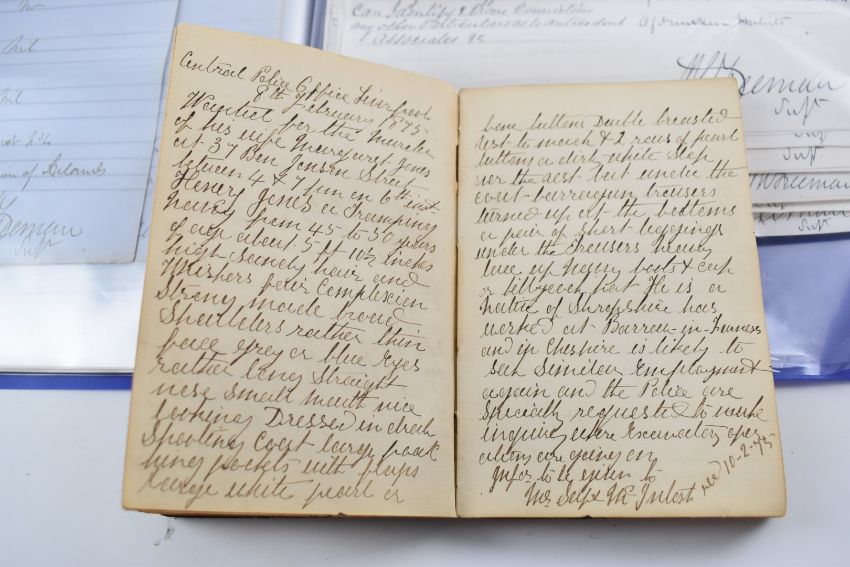 Central Police Office Liverpool
8th February 1875
Wanted for the Murder
of his wife Margaret Jones
at 37 Ben Jonson Street
between 4 & 7 pm on 6th inst.
Henery Jones a Tramping
navvy from 45 to 50 years
of age about 5 ft 10½ inches
high Sandy hair and
Whiskers fair Complexion
Strong made broad
Shoulders rather thin
face grey or blue Eyes
rather long Straight
nose small mouth nice
looking Dressed in drab
Shooting Coat large pock
with flaps
large white pearl or
bone buttons Double breasted
vest to match & 2 rows of pearl
buttons a dirty white Slop
over the vest but under the
coat barragan trousers
turned up at the bottoms
a pair of Short leggings
under the trousers heavy
lace up boots & cap
or billycock hat He is a
native of Shropshire has
worked at Barrow-in-Furness
and in Cheshire is likely to
seek Similar Employment
again and the Police are
Specially requested to make
inquiry where Excavating oper
ations are going on
Infor. to be given to
Supt
recd 10-2-75
Can Identify & Prove Conviction
any other Particulars as to antecedent
Associates &c
of drunken habits
Supt
Supt
Supt
Supt